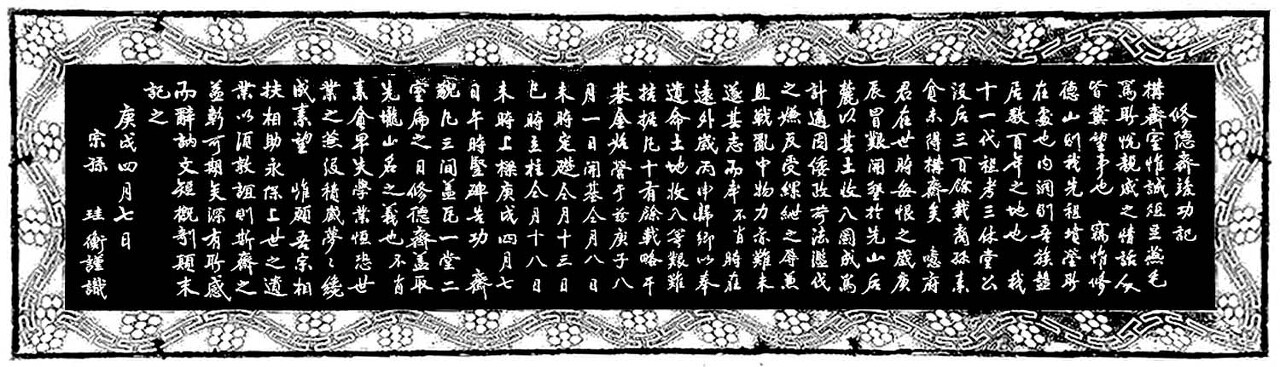 修德齋竣功記
構齋室惟誠俎豆無毛
篤形悅親戚之情話人
皆冀望事也 竊惟修
德山則我先祖墳塋形
在孟也內洞則吾族盤
居数百年之地也 我
十一代祖考三休堂公
沒后三百餘載裔孫素
貧未得構齋矣 噫府
君在世時每恨之歲庚
辰冒艱開墾於先山后
麓以其土收入圖成爲
計適因倭政苛法濫伐
之爀反受縲絏之辱兼
且戰亂中物力亦難未
遂其志而卒 不肖時在
遠外歲丙申歸鄉以奉
遺命土地收入等艱難
拮据凡十有餘載略干
基金始營于玆庚子八
月一日開基仝月八日
未時定礎仝月十三日
巳時立柱仝月十八日
未時上樑庚戌四月七
日午時竪碑告功 齋
覲凡三間盖瓦一堂二
室扁之曰修德齋盖取
先壠山名之義也 不肖
素貪早失學業恒悲世
業之無復積歲夢之纔
成素望 惟願吾宗相
扶相助永保上世之遺
業以須敦誼則斯齋之
益新可期矣深有形感
而辭訥文短槪剳顚末
記之
庚戌四月七日
宗孫 珪衡謹識